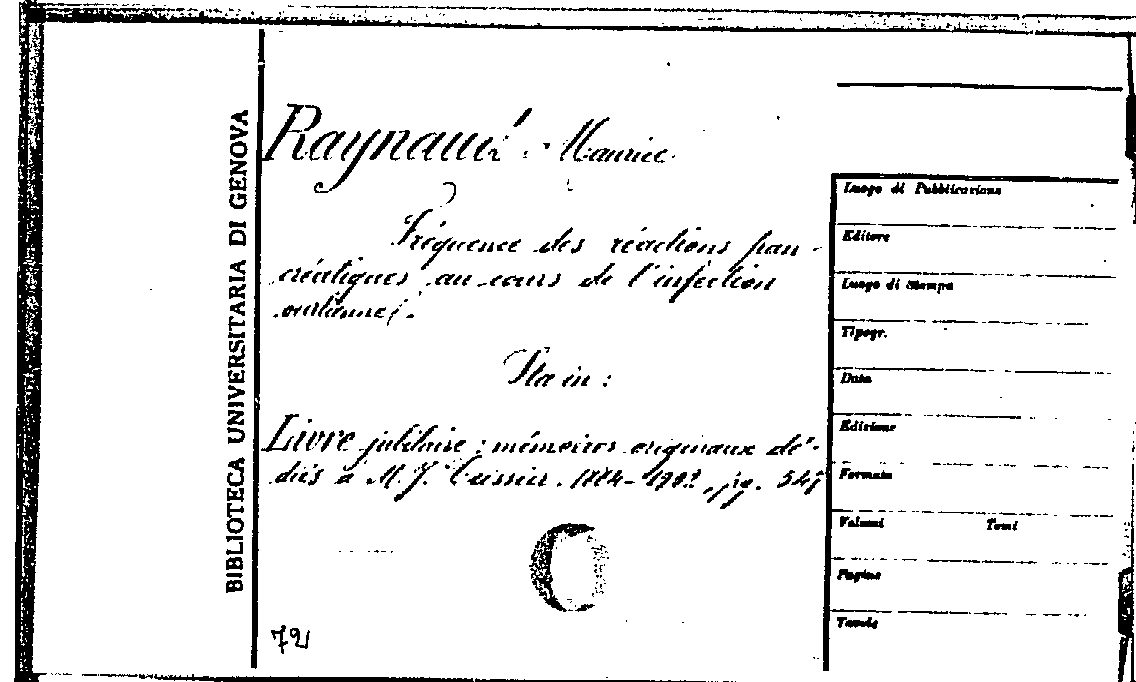 BIBLIOTECA UNIVERSITARIA DI GENOVA
Raynaud Maurice
Fréquence des réactions pan-
créatiques au cours de l'infection
ourlienne.
Sta in:
Livre jubilaire: mémoires originaux dé-
diés à M. J. Teissier. 1884-1909, pg. 547
72
Luogo di Pubblicazione
Editore
Luogo di stampa
Tipogr.
Data
Edizione
Formato
Volumi Tomi
Pagine
Tavole